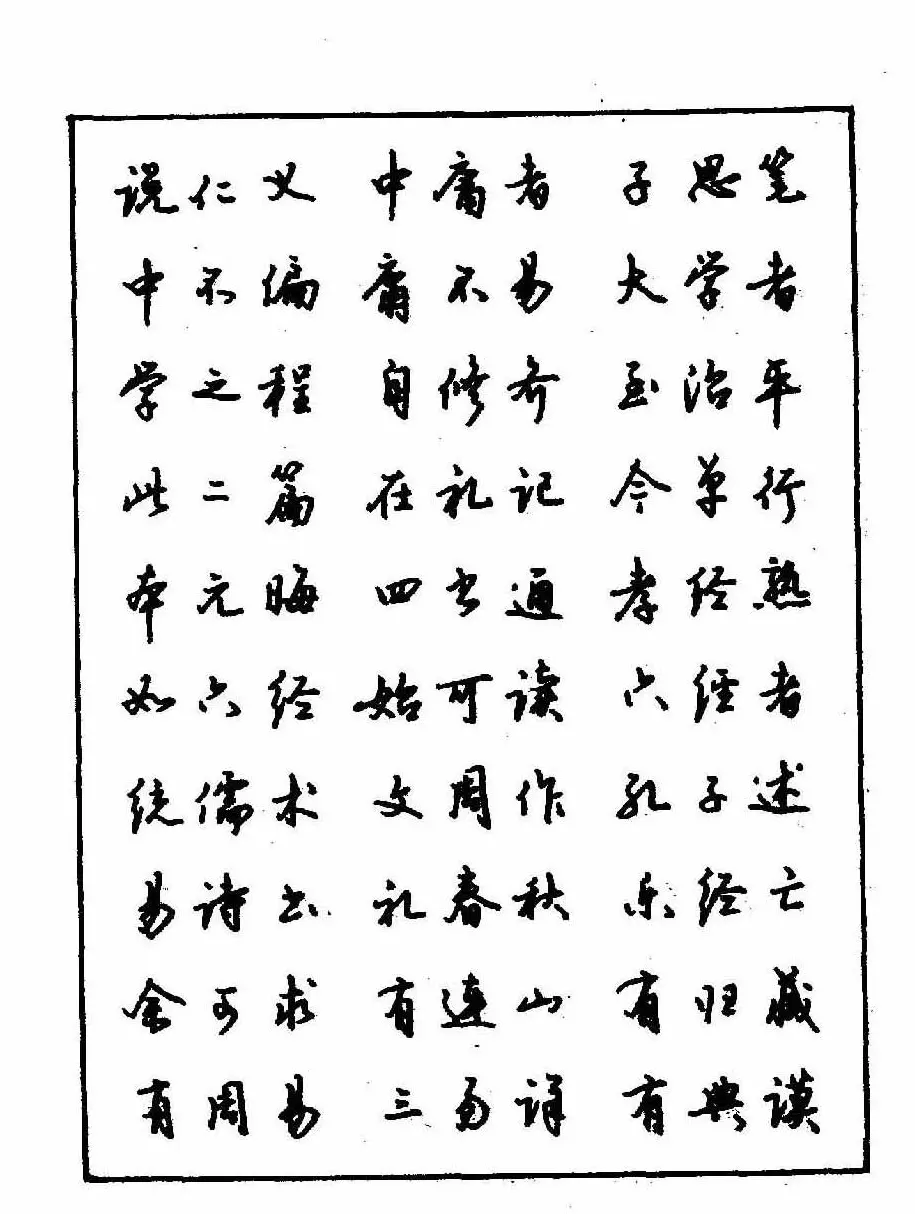 说仁义 中庸者 子思笔
中不偏 庸不易 大学者
学之程 自修齐 至治平
此二篇 在礼记 今单行
本元晦 四书通 孝经熟
如六经 始可读 六经者
统儒术 文周作 孔子述
易诗书 礼春秋 乐经亡
余可求 有连山 有归藏
有周易 三易详 有典谟